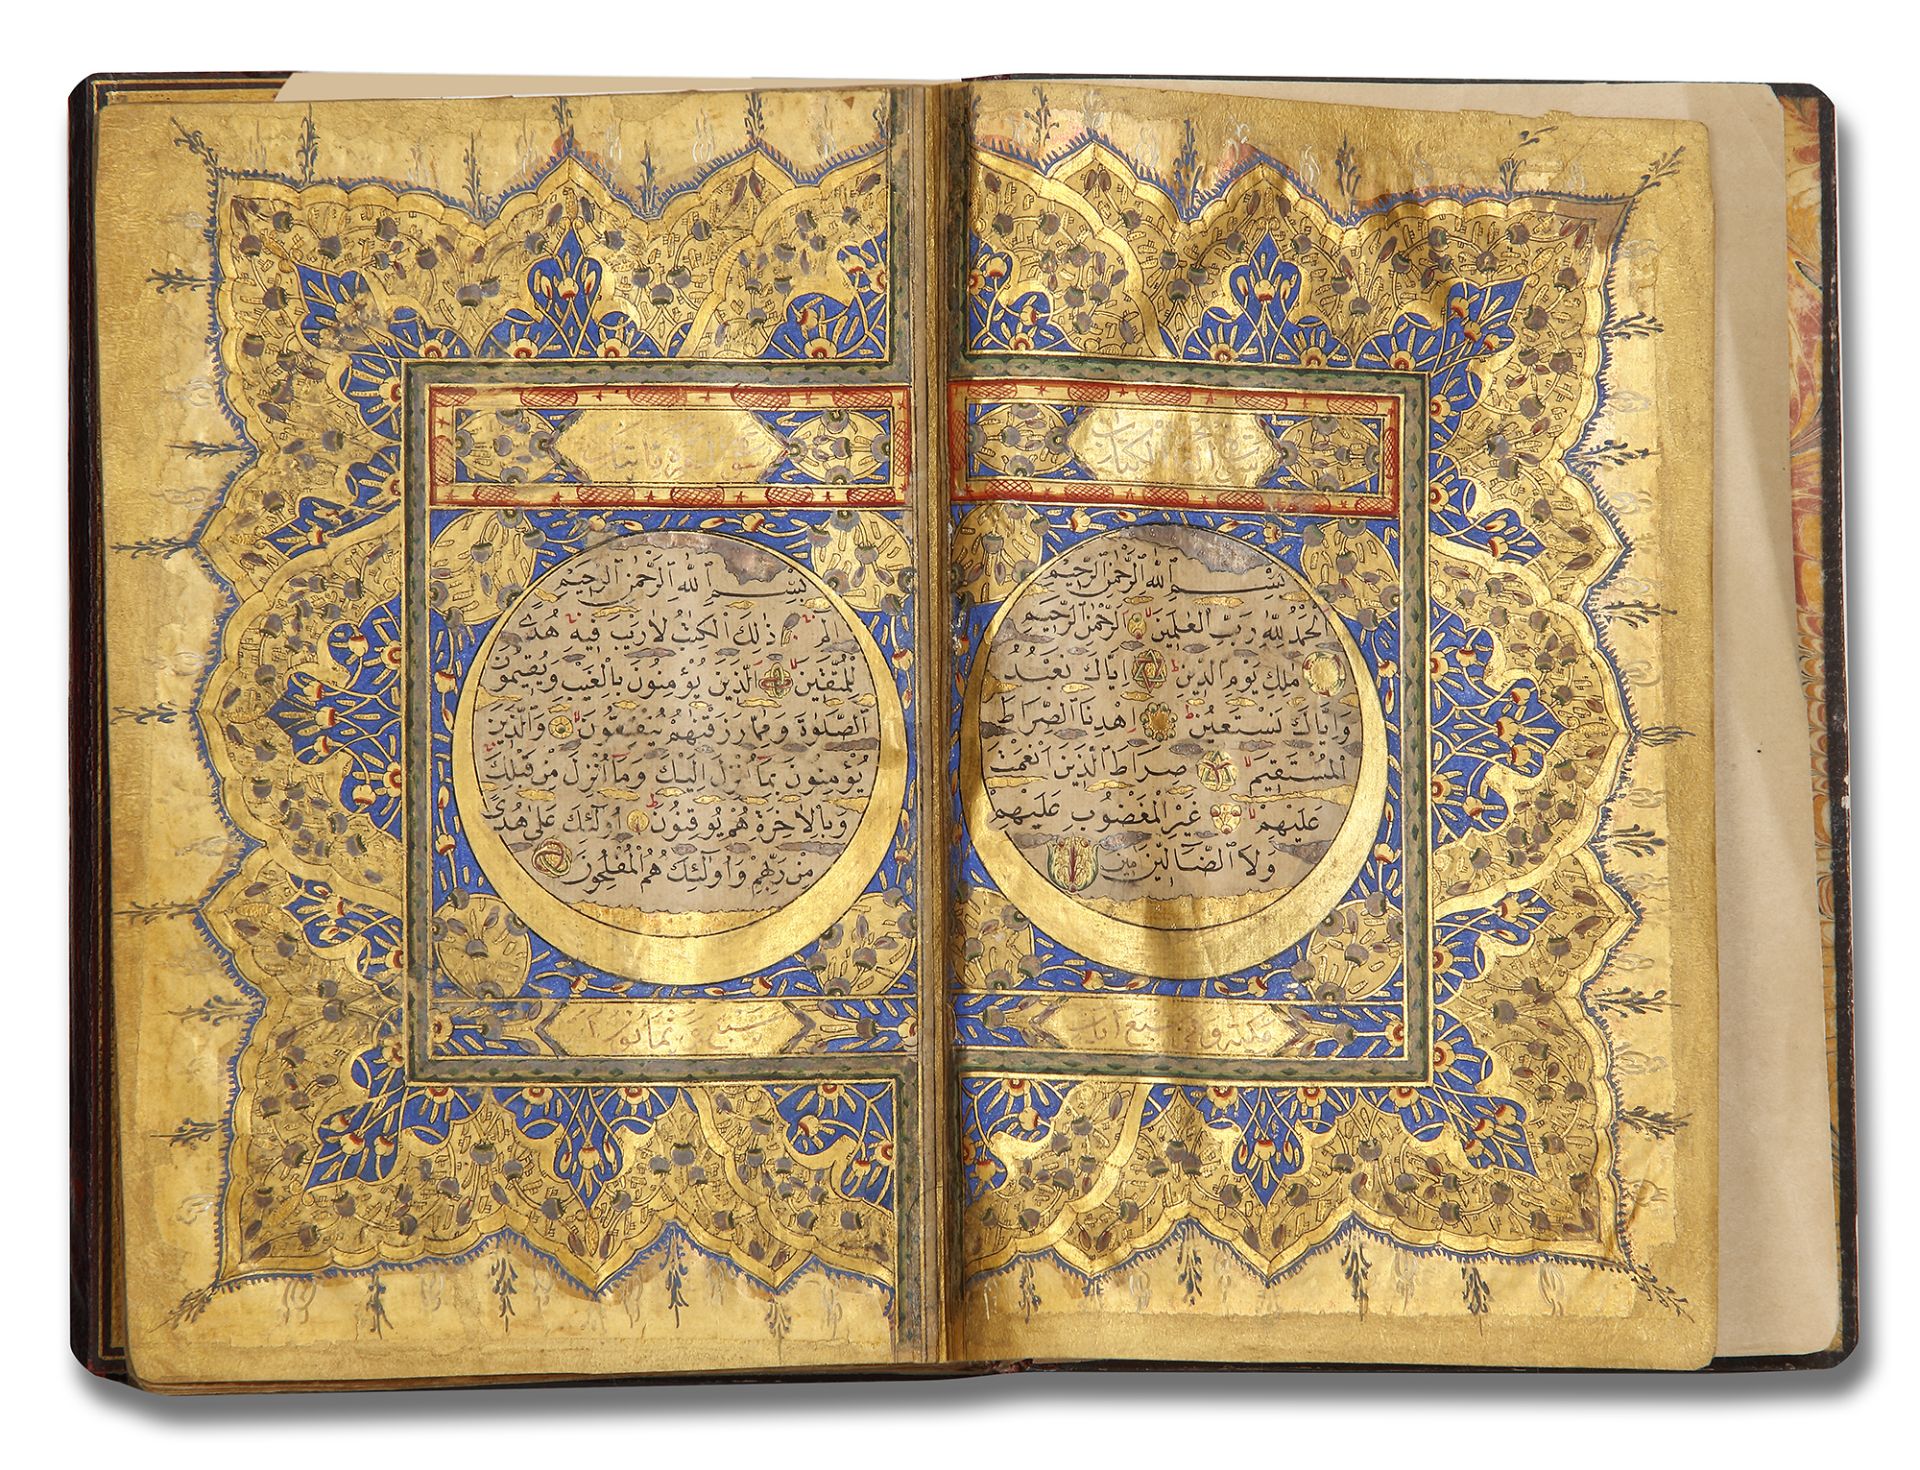 سورة فاتحة الكتاب
بِسْمِ ٱللهِ ٱلرَّحْمٰنِ ٱلرَّحِيمِ
اَلْحَمْدُ لِلّٰهِ رَبِّ الْعٰلَمِينَ الرَّحْمٰنِ الرَّحِيمِ
مٰلِكِ يَوْمِ الدِّينِ ط اِيَّاكَ نَعْبُدُ
وَاِيَّاكَ نَسْتَعِينُ ط اِهْدِنَا الصِّرَاطَ
الْمُسْتَقِيمَ لا صِرَاطَ الَّذِينَ اَنْعَمْتَ
عَلَيْهِمْ لا غَيْرِ الْمَغْضُوبِ عَلَيْهِمْ
وَلَا الضَّالِّينَ
مكية وهي سبع آيات
بِسْمِ ٱللهِ ٱلرَّحْمٰنِ ٱلرَّحِيمِ
الم ذٰلِكَ الْكِتٰبُ لَا رَيْبَ فِيهِ هُدًى
لِلْمُتَّقِينَ لا اَلَّذِينَ يُؤْمِنُونَ بِالْغَيْبِ وَيُقِيمُونَ
الصَّلٰوةَ وَمِمَّا رَزَقْنٰهُمْ يُنْفِقُونَ لا وَالَّذِينَ
يُؤْمِنُونَ بِمَا اُنْزِلَ اِلَيْكَ وَمَا اُنْزِلَ مِنْ قَبْلِكَ
وَبِالْاٰخِرَةِ هُمْ يُوقِنُونَ ط اُولٰئِكَ عَلٰى هُدًى
مِنْ رَبِّهِمْ وَاُولٰئِكَ هُمُ الْمُفْلِحُونَ